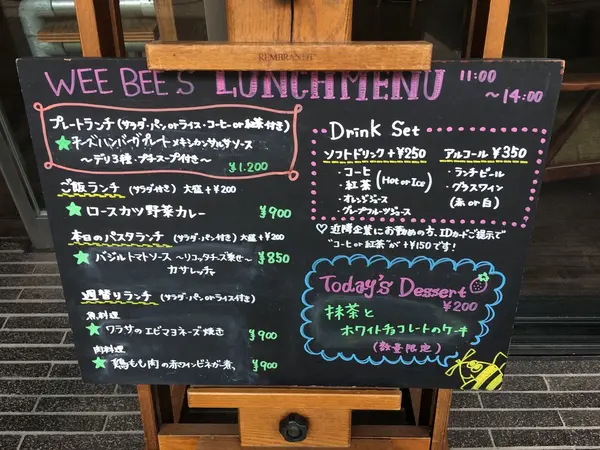 REMBRANDT
WEE BEE'S LUNCH MENU 11:00
~14:00
プレートランチ (サラダ・パン or ライス・コーヒ or 紅茶付き)
★チーズハンバーグプレート メキシカンサルサソース
~デリ3種・プチスープ付き~
¥1.200
ご飯ランチ (サラダ付き) 大盛+¥200
★ロースカツ野菜カレー ¥900
本日のパスタランチ (サラダ・パン付き) 大盛+¥200
★バジルトマトソース ~リコッタチーズ乗せ~ ¥850
カサレッチェ
週替りランチ (サラダ・パン or ライス付き)
魚料理
★ワラサのエビマヨネーズ焼き ¥900
肉料理
★鶏もも肉の赤ワインビネガー煮 ¥900
Drink Set
ソフトドリンク+¥250
・コーヒ
・紅茶 (Hot or Ice)
・オレンジジュース
・グレープフルーツジュース
アルコール ¥350
・ランチビール
・グラスワイン
(赤 or 白)
♡近隣企業にお勤めの方、IDカードご提示で
"コーヒ or 紅茶"が+¥150です!
Today's Dessert
¥200
抹茶と
ホワイトチョコレートのケーキ
(数量限定)